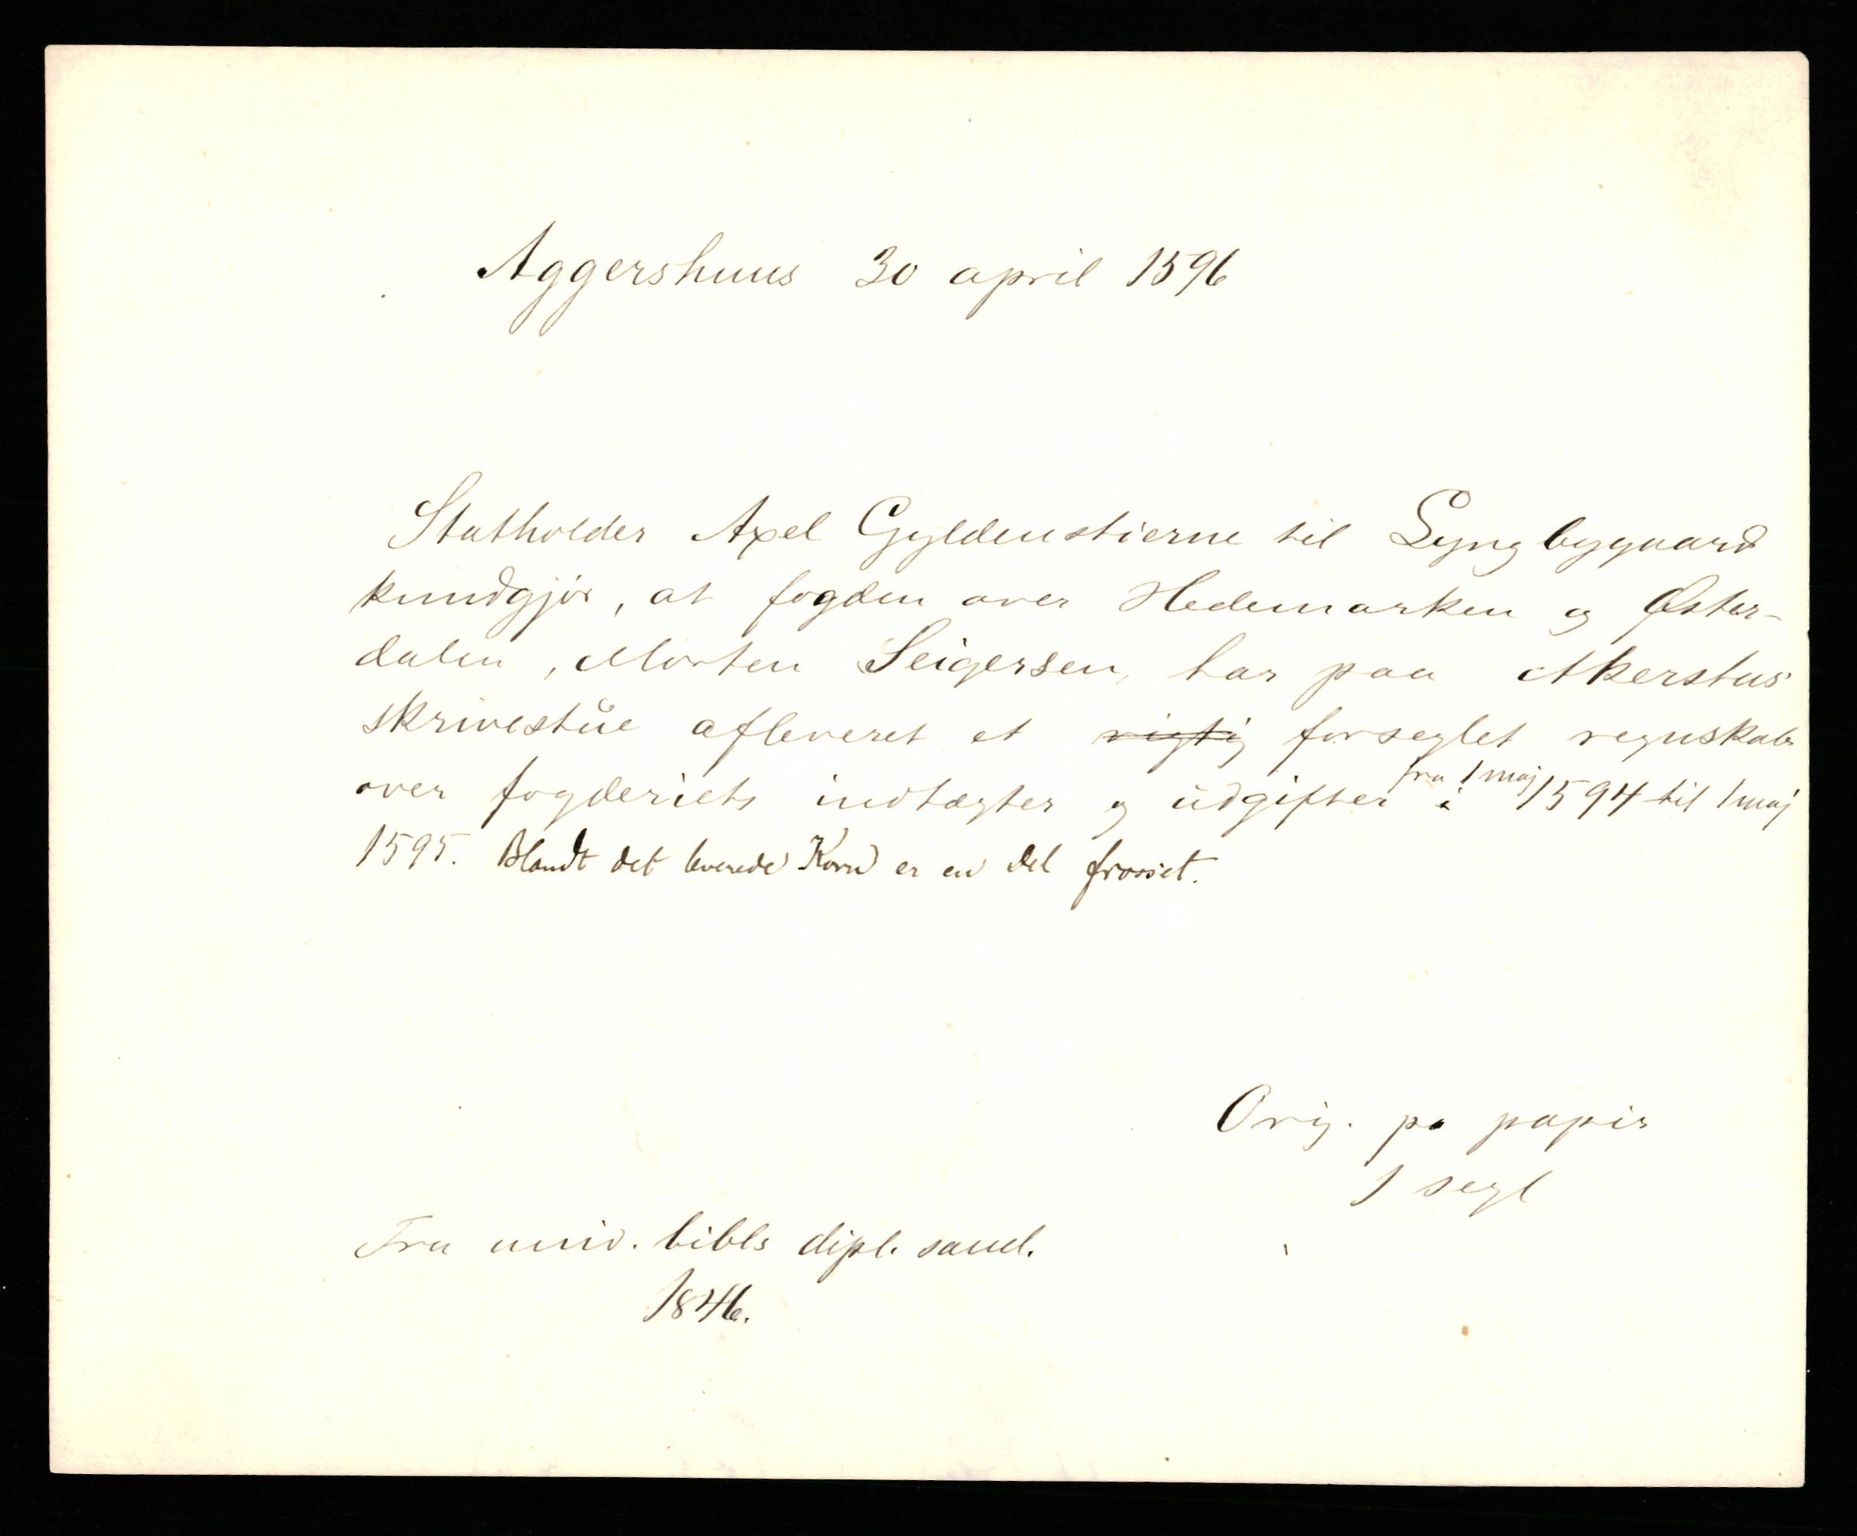 Aggershuus 30 april 1596
Statholder Axel Gyldenstierne til Lyngbygaard
kundgjør, at fogden over Hedemarken og Øster-
dalen, Morten Seigersen, har paa Akershus
skrivestue afleveret et rigtig forseglet regnskab
over fogderiets indtægter og udgifter fra 1 maj i 1594 til 1 maj
1595. Blandt det leverede Korn er en Del frosset.
Orig. pa papir
1 segl
Fra univ. bibls dipl. saml.
1846.